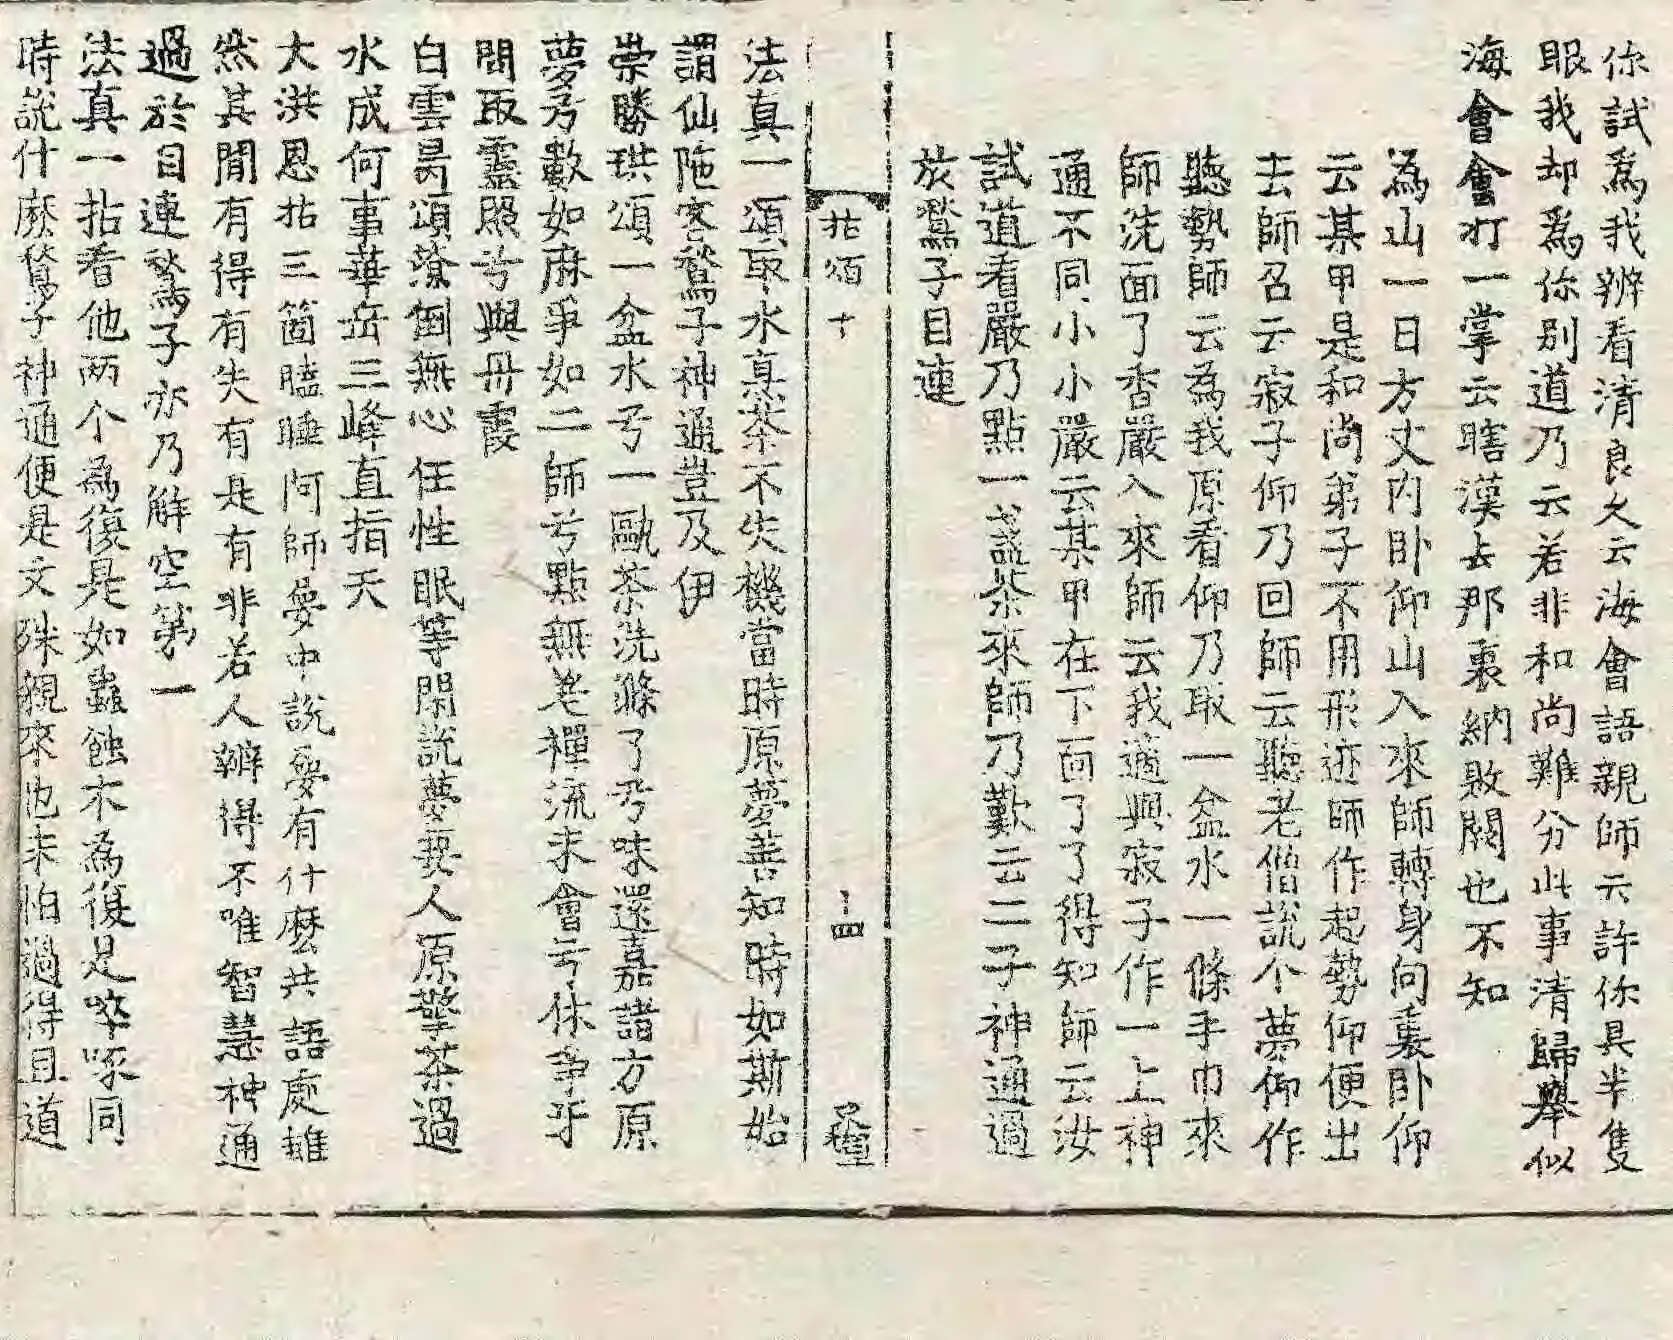 你試爲我辨看清良久云海會語親師云許你具半隻
眼我却爲你別道乃云若非和尚難分此事清歸舉似
海會會打一掌云瞎漢去那裏納敗闕也不知
為山一日方丈内卧仰山入來師轉身向裏卧仰
云某甲是和尚弟子不用形迹師作起勢仰便出
去師召云寂子仰乃回師云聽老僧說个夢仰作
聽勢師云為我原看仰乃取一盆水一條手巾來
師洗面了香嚴入來師云我適與寂子作一上神
通不同小小嚴云某甲在下面了了得知師云汝
試道看嚴乃點一盞茶來師乃歎云二子神通過
於鶖子目連
拈頌十 十四
法真一頌取水烹茶不失機當時原夢善知時如斯始
謂仙陁客鶖子神通豈及伊
崇勝珙頌一盆水兮一甌茶洗滌了兮味還嘉諸方原
夢兮數如麻爭如二師兮點無差禪流未會兮休爭乎
問取靈照兮與丹霞
白雲昺頌潦倒無心任性眠等閑說夢要人原擎茶過
水成何事華岳三峰直指天
大洪恩拈三箇瞌睡阿師夢中說夢有什麽共語處雖
然其閒有得有失有是有非若人辨得不唯智慧神通
過於目連鶖子亦乃解空第一
法真一拈看他两个為復是如蟲蝕木為復是啐啄同
時説什麽鶖子神通便是文殊親來也未怕過得且道